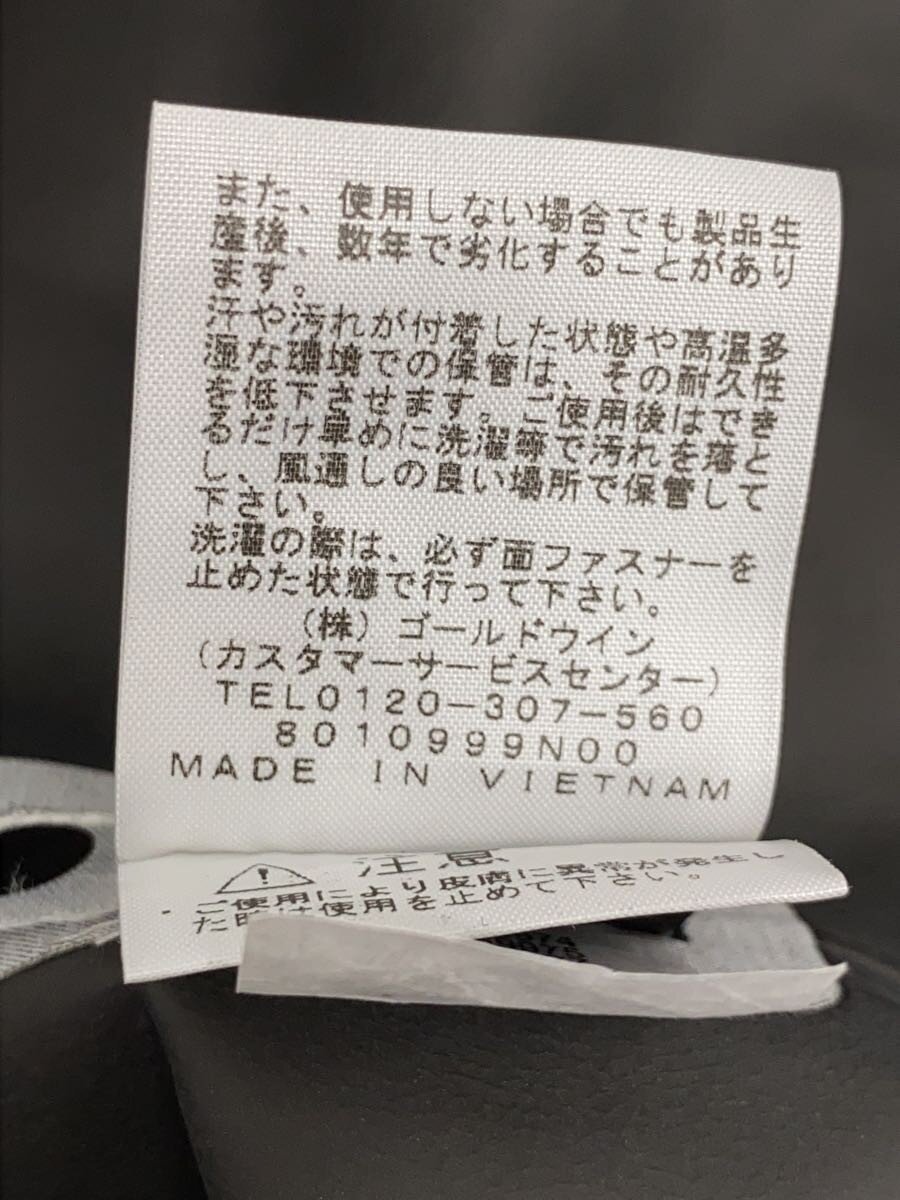 また、使用しない場合でも製品生
産後、数年で劣化することがあり
ます。
汗や汚れが付着した状態や高温多
湿な環境での保管は、その耐久性
を低下させます。ご使用後はでき
るだけ早めに洗濯等で汚れを落と
し、風通しの良い場所で保管して
下さい。
洗濯の際は、必ず面ファスナーを
止めた状態で行って下さい。
(株)ゴールドウイン
(カスタマーサービスセンター)
TEL0120-307-560
8010999N00
MADE IN VIETNAM
注意
ご使用により皮膚に異常が発生し
た時は使用を止めて下さい。